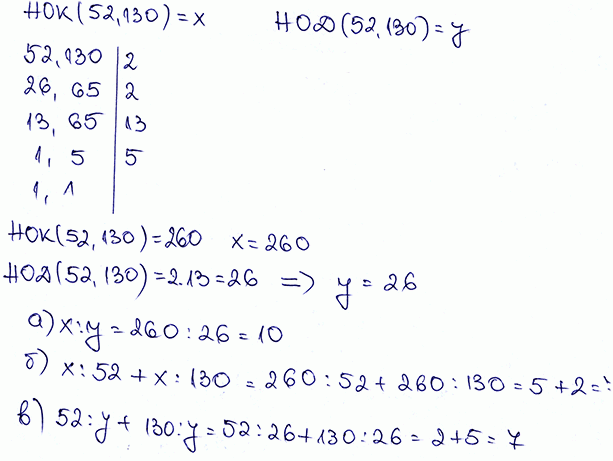 НОК(52,130)=x НОД(52,130)=y
52,130 | 2
26, 65 | 2
13, 65 | 13
1, 5 | 5
1, 1 |
НОК(52,130)=260 x=260
НОД(52,130)=2.13=26 => y=26
а) x:y=260:26=10
б) x:52+x:130=260:52+260:130=5+2=
в) 52:y+130:y=52:26+130:26=2+5=7